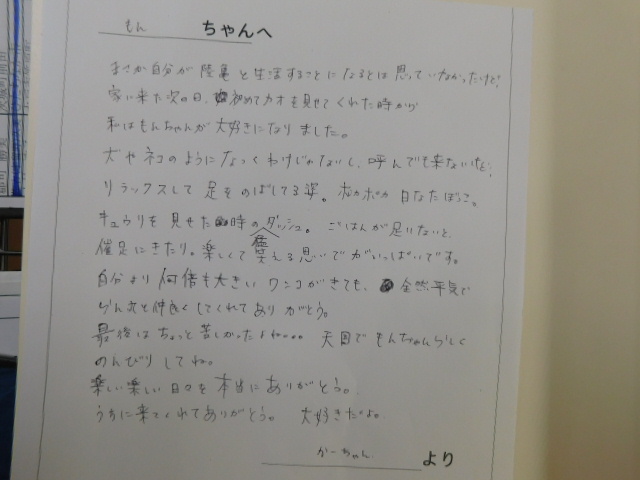 もん ちゃんへ
まさか自分が陸亀と生活することになるとは思っていなかったけど、
家に来た次の日、初めてカオを見せてくれた時から
私はもんちゃんが大好きになりました。
犬やネコのようになつくわけじゃないし、呼んでも来ないけど、
リラックスして足をのばしてる姿。ポカポカ日なたぼっこ。
キュウリを見せた時のダッシュ。ごはんが足りないと、
催足にきたり。楽しくて笑える思いでがいっぱいです。
自分より何倍も大きいワンコがきても、全然平気で
仲良くしてくれてありがとう。
最後はちょっと苦しかったよね… 天国でもんちゃんらしく
のんびりしてね。
楽しい楽しい日々を本当にありがとう。
うちに来てくれてありがとう。 大好きだよ。
かーちゃん より